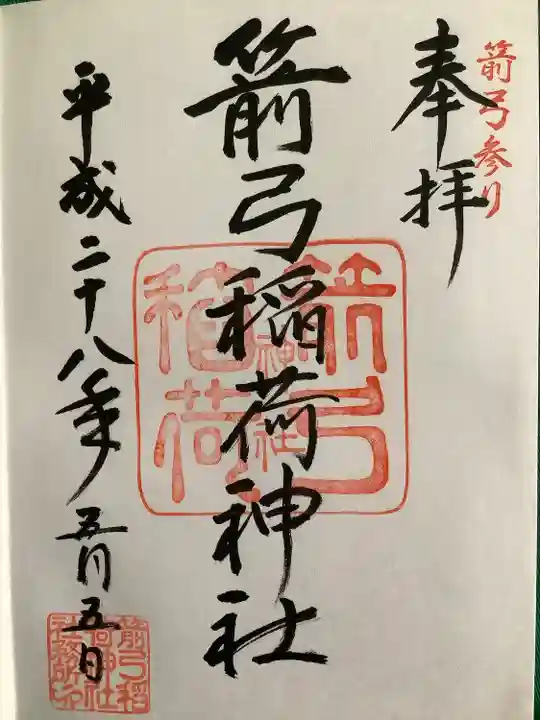 箭弓参り
奉拝
箭弓稲荷神社
箭弓稲荷神社
平成二十八年五月五日
箭弓稲荷神社社務所印